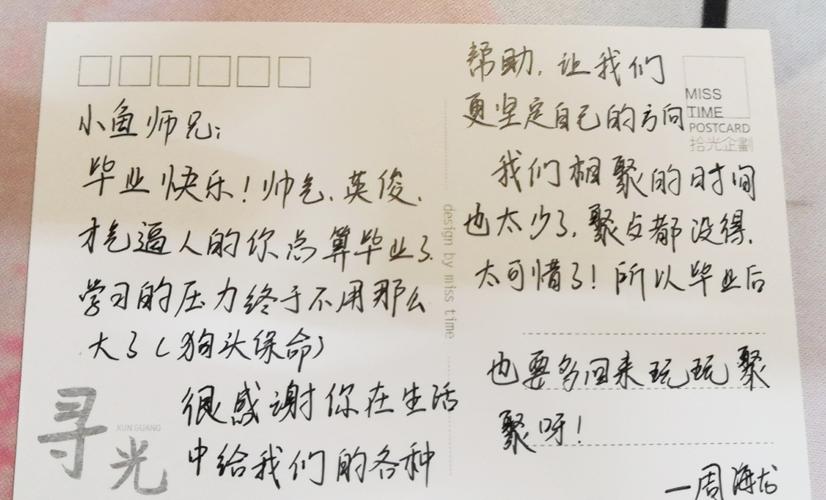 小鱼师兄：
毕业快乐！帅气、英俊、
才气逼人的你总算毕业了，
学习的压力终于不用那么
大了（狗头保命）
很感谢你在生活
中给我们的各种
帮助，让我们
更坚定自己的方向
我们相聚的时间
也太少了，聚餐都没得，
太可惜了！所以毕业后
也要多回来玩玩聚
聚呀！
—周海龙
MISS
TIME
POSTCARD
拾光企劃
design by miss time
寻光
XUN GUANG